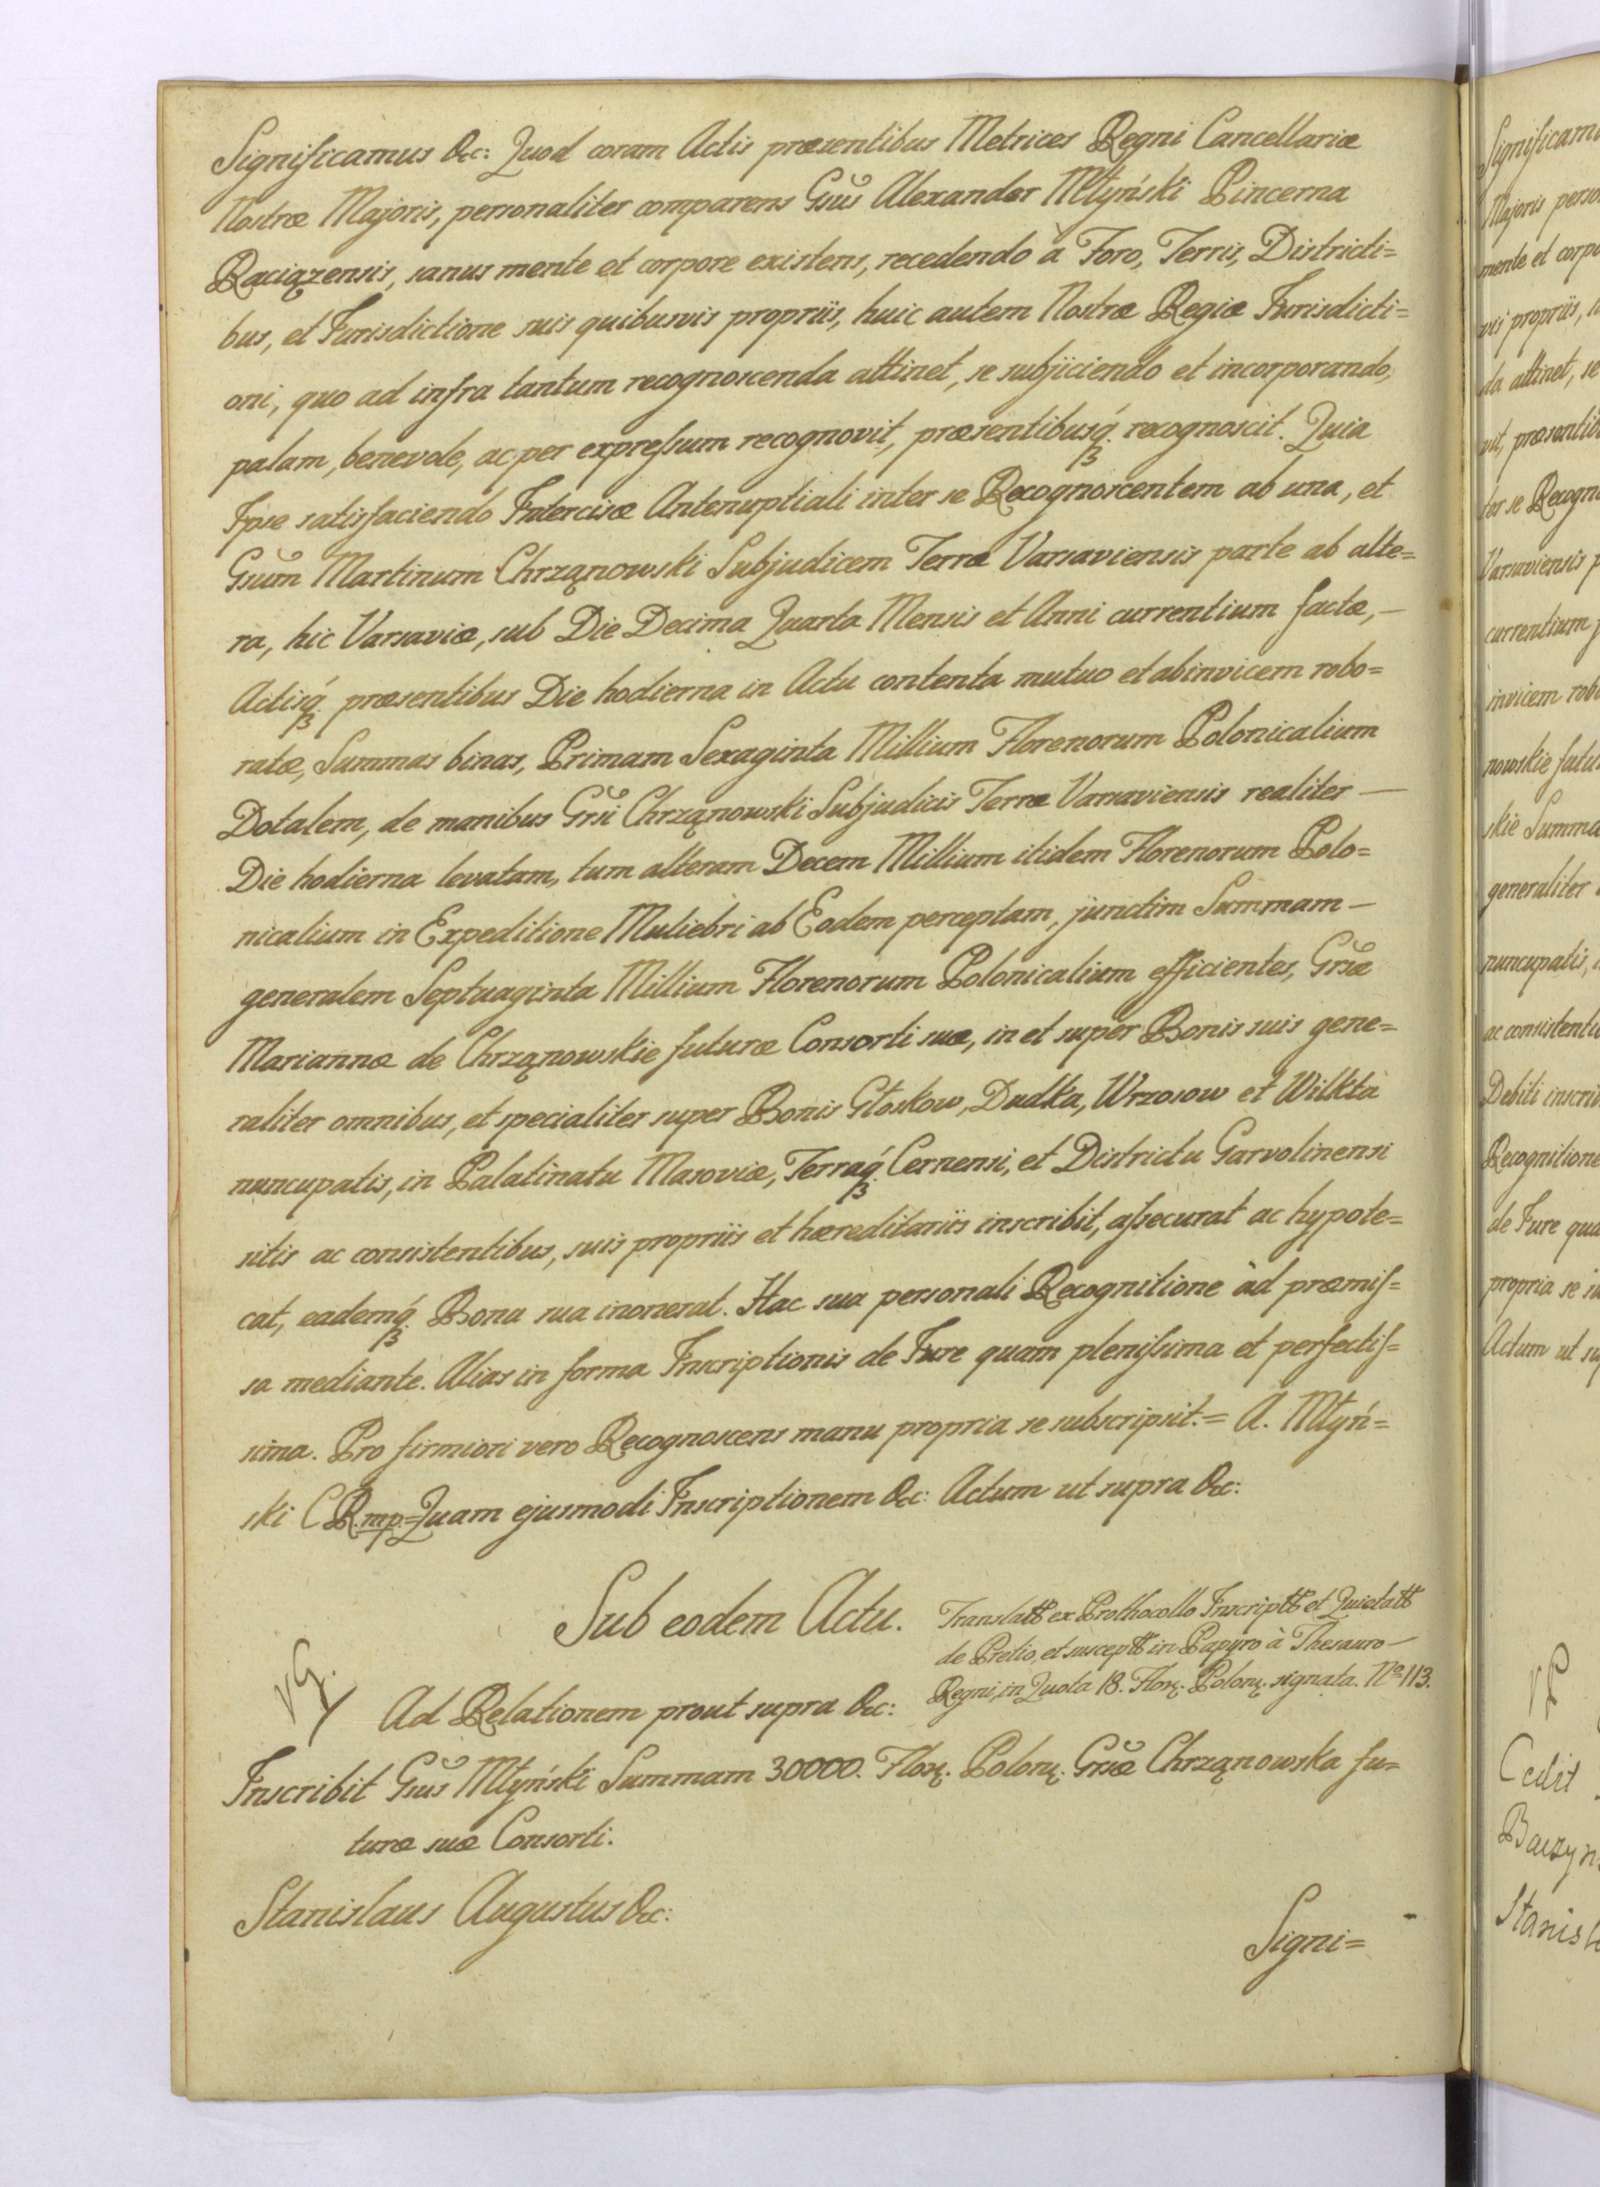 Significamus &c: Quod coram Actis præsentibus Metrices Regni Cancellariæ
Nostræ Majoris, personaliter comparens Gsus Alexander Młyński Pincerna
Raciązensis, sanus mente et corpore existens, recedendo à Foro, Terris, Districti=
bus, et Jurisdictione suis quibusvis propriis, huic autem Nostræ Regiæ Jurisdicti=
oni, quo ad infra tantum recognoscenda attinet, se subjiciendo et incorporando,
palam, benevole, ac per expressum recognovit, præsentibusq́ recognoscit. Quia
Ipse satisfaciendo Intercisæ Antenuptiali inter se Recognoscentem ab una, et
Gsum Martinum Chrząnowski Subjudicem Terræ Varsaviensis parte ab alte=
ra, hic Varsaviæ, sub Die Decima Quarta Mensis et Anni currentium factæ, —
Actisq́ præsentibus Die hodierna in Actu contenta mutuo et abinvicem robo=
ratæ, Summas binas, Primam Sexaginta Millium Florenorum Polonicalium
Dotalem, de manibus Grsi Chrząnowski Subjudicis Terræ Varsaviensis realiter —
Die hodierna levatam, tum alteram Decem Millium itidem Florenorum Polo=
nicalium in Expeditione Muliebri ab Eodem perceptam, junctim Summam —
generalem Septuaginta Millium Florenorum Polonicalium efficientes, Grsæ
Mariannæ de Chrząnowskie futuræ Consorti suæ, in et super Bonis suis gene=
raliter omnibus, et specialiter super Bonis Głoskow, Dudka, Wrzosow et Wilkta
nuncupatis, in Palatinatu Masoviæ, Terraq́ Cernensi, et Districtu Garvolinensi
sitis ac consistentibus, suis propriis et hæreditariis inscribit, assecurat ac hypote=
cat, eademq́ Bona sua inonerat. Hac sua personali Recognitione àd præmis=
sa mediante. Alias in forma Inscriptionis de Jure quam plenissima et perfectis=
sima. Pro firmiori vero Recognoscens manu propria se subscripsit.= A. Młyń=
ski C R. mp.= Quam ejusmodi Inscriptionem &c: Actum ut supra &c:
Sub eodem Actu.
Translatt ex Prothocollo Inscriptt et Quietatt
de Pretio, et susceptt in Papyro à Thesauro —
Regni, in Quota 18. Flor. Polon. signata. No 113.
Ad Relationem prout supra &c:
Inscribit Gsus Młyński Summam 30000. Flor. Polon. Grsæ Chrząnowska fu=
turæ suæ Consorti.
Stanislaus Augustus &c:
Signi=